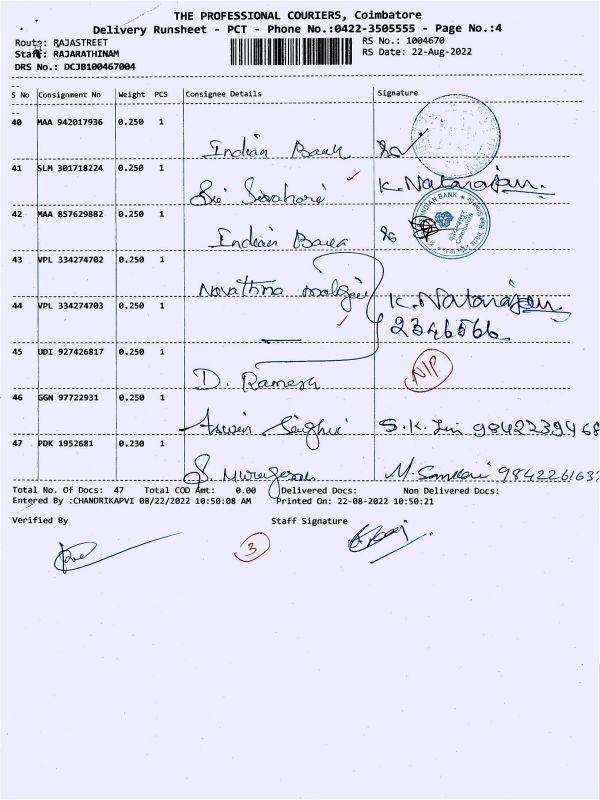 THE PROFESSIONAL COURIERS, Coimbatore
Delivery Runsheet - PCT - Phone No.:0422-3505555 - Page No.:4
Route: RAJASTREET RS No.: 1004670
Staff: RAJARATHINAM RS Date: 22-Aug-2022
DRS No.: DCJB100467004
S No Consignment No Weight PCS Consignee Details Signature
40 MAA 942017936 0.250 1
Indian Bank
41 SLM 301718224 0.250 1
K. Natarajan.
42 MAA 857629882 0.250 1
Indian Bank
INDIAN BANK
43 VPL 334274702 0.250 1
44 VPL 334274703 0.250 1
K. Natarajan
2346566
45 UDI 927426817 0.250 1
D. Ramesh
N/P
46 GGN 97722931 0.250 1
S.K. 9842239468
47 PDK 1952681 0.230 1
S. Murugesan M. 984226163
Total No. Of Docs: 47 Total COD Amt: 0.00 Delivered Docs: Non Delivered Docs:
Entered By :CHANDRIKAPVI 08/22/2022 10:50:08 AM Printed On: 22-08-2022 10:50:21
Verified By Staff Signature
3